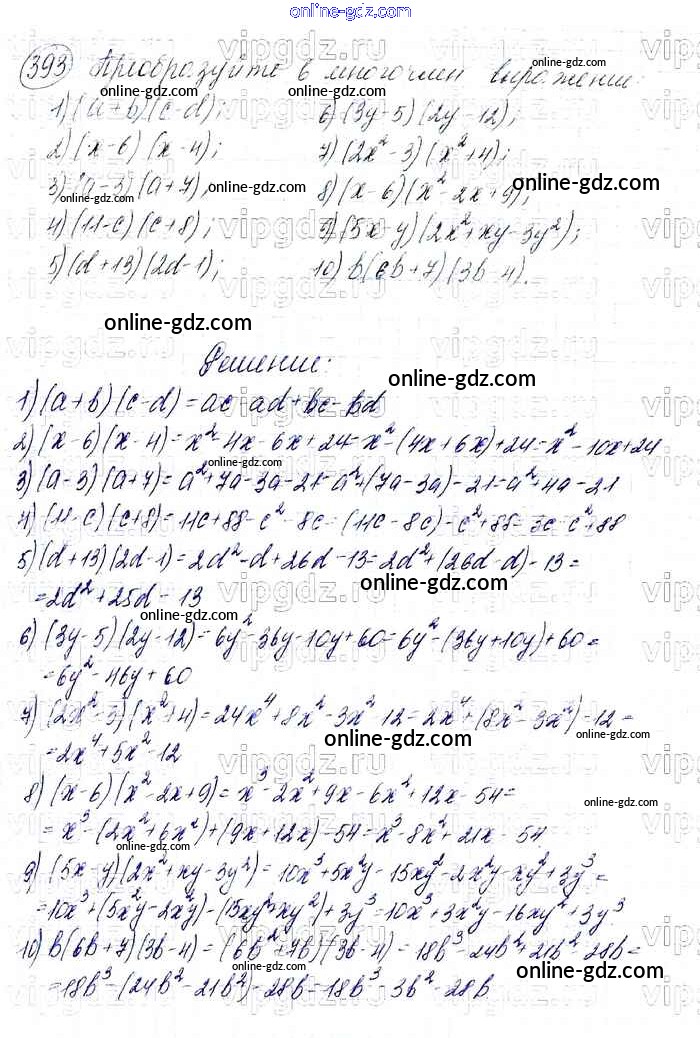 393 Преобразуйте в многочлен выражение:
1) (a+b)(c-d); 6) (3y-5)(2y-12);
2) (x-6)(x-4); 7) (2x²-3)(x²+4);
3) (a-3)(a+7), 8) (x-6)(x²-2x+9);
4) (11-c)(c+8); 9) (5x-y)(2x²+xy-3y²);
5) (d+13)(2d-1); 10) b(6b+7)(3b-4).
Решение:
1) (a+b)(c-d)=ac-ad+bc-bd
2) (x-6)(x-4)=x²-4x-6x+24=x²-(4x+6x)+24=x²-10x+24
3) (a-3)(a+7)=a²+7a-3a-21=a²+(7a-3a)-21=a²+4a-21
4) (11-c)(c+8)=11c+88-c²-8c=(11c-8c)-c²+88=3c-c²+88
5) (d+13)(2d-1)=2d²-d+26d-13=2d²+(26d-d)-13=
=2d²+25d-13
6) (3y-5)(2y-12)=6y²-36y-10y+60=6y²-(36y+10y)+60=
=6y²-46y+60
7) (2x²-3)(x²+4)=24x⁴+8x²-3x²-12=2x⁴+(8x²-3x²)-12=
=2x⁴+5x²-12
8) (x-6)(x²-2x+9)=x³-2x²+9x-6x²+12x-54=
=x³-(2x²+6x²)+(9x+12x)-54=x³-8x²+21x-54
9) (5x-y)(2x²+xy-3y²)=10x³+5x²y-15xy²-2x²y-xy²+3y³=
=10x³+(5x²y-2x²y)-(15xy²+xy²)+3y³=10x³+3x²y-16xy²+3y³.
10) b(6b+7)(3b-4)=(6b²+7b)(3b-4)=18b³-24b²+21b²-28b=
=18b³-(24b²-21b²)-28b=18b³-3b²-28b
online-gdz.com
vipgdz.ru